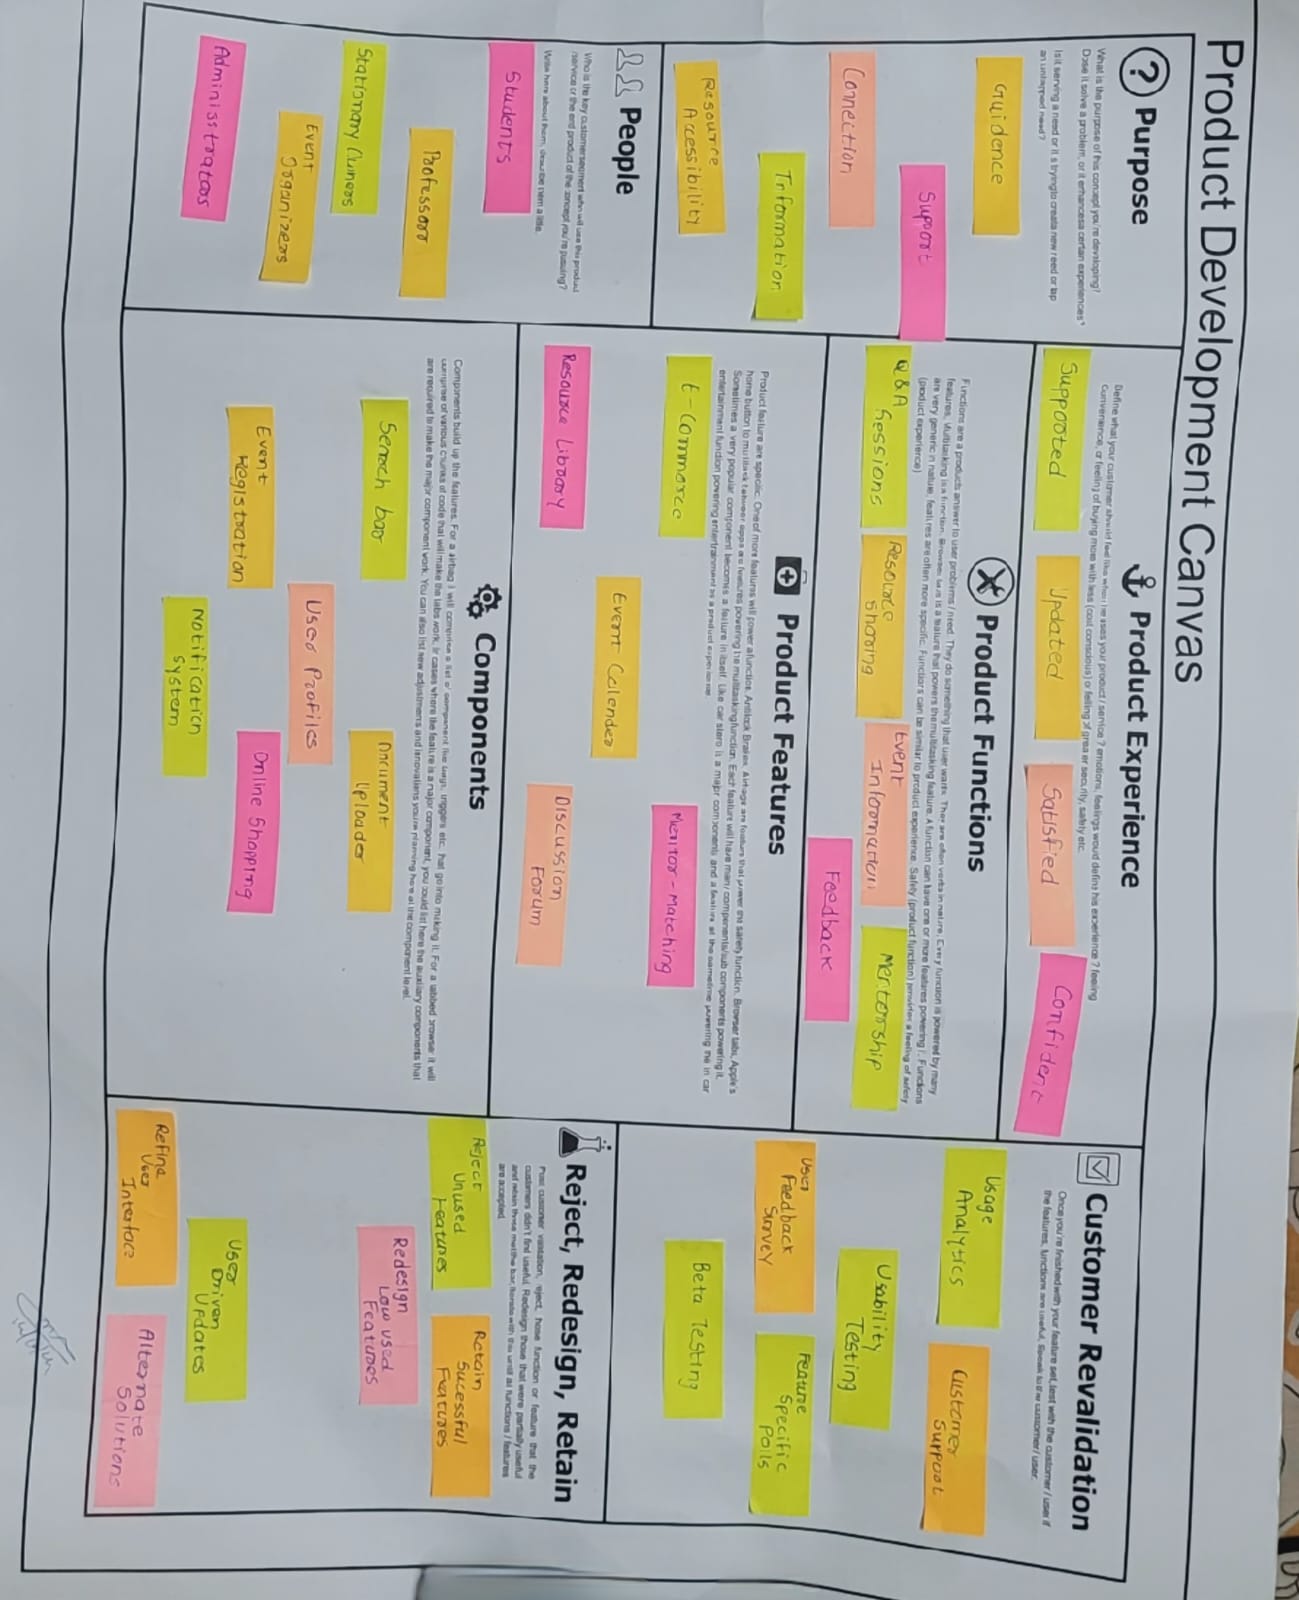 Product Development Canvas
Purpose
What is the purpose of this concept you're developing?
Dose it solve a problem, or it enhances a certain experiences?
Is it serving a need or it is trying to create new need or tap
an untapped need?
Guidence
Support
Connection
Information
Resource
Accessibility
People
Who is the key customer segment who will use this product
/service or the end product of the concept you're pusuing?
Write here about them, describe them a little.
Students
Professor
Stationary Owners
Event
Organizers
Administrators
Product Experience
Define what your customer should feel like when he uses your product / service ? emotions, feelings would define his experience ? feeling
convenience, or feeling of buying more with less (cost conscious) or felling of greater security, safety etc.
Supported
Updated
Satisfied
Confident
Product Functions
Functions are a products answer to user problems / need. They do something that user wants. They are often verbs in nature. Every function is powered by many
features, Multitasking is a function. Browser tabs is a feature that powers the multitasking feature. A function can have one or more features powering it. Functions
are very generic in nature, features are often more specific. Functions can be similar to product experience. Safety (product function) provides a feeling of safety
(product experience)
Q&A
Sessions
Resource
Sharing
Event
Information
Mentorship
Feedback
Product Features
Product feature are specific. One of more features will power a function. Antilock Brakes, Airbags are feature that power the safety function. Browser tabs, Apple's
home button to multitask between apps are features powering the multitasking function. Each feature will have many components/sub components powering it.
Sometimes a very popular component becomes a feature in itself. Like car stereo is a major components and a feature at the sametime powering the in car
entertainment function powering entertrainment as a product experience
E-Commerce
Mentor-Matching
Event Calender
Resource Library
Discussion
Forum
Components
Components build up the features. For a airbag it will comprise a list of component like bags, triggers etc. that go into making it. For a tabbed browser it will
comprise of various chunks of code that will make the tabs work. In cases where the feature is a major component, you could list here the auxiliary components that
are required to make the major component work. You can also list new adjustments and innovations you're planning here at the component level.
Search bar
Document
Uploader
User Profiles
Event
Registration
Online Shopping
Notification
System
Customer Revalidation
Once you're finished with your feature set, test with the customer / user if
the features, functions are useful. Speak to the customer/ user.
Usage
Analytics
Customer
Support
Usability
Testing
User
Feedback
Survey
Feature
Specific
Polls
Beta Testing
Reject, Redesign, Retain
Post customer validation, reject, those function or feature that the
customers didn't find useful, Redesign those that were partially useful
and retain those met the bar. Iterate with this until all functions / features
are accepted.
Reject
Unused
Features
Retain
Sucessful
Features
Redesign
Low used
Features
User
Driven
Updates
Refine
User
Interface
Alternate
Solutions